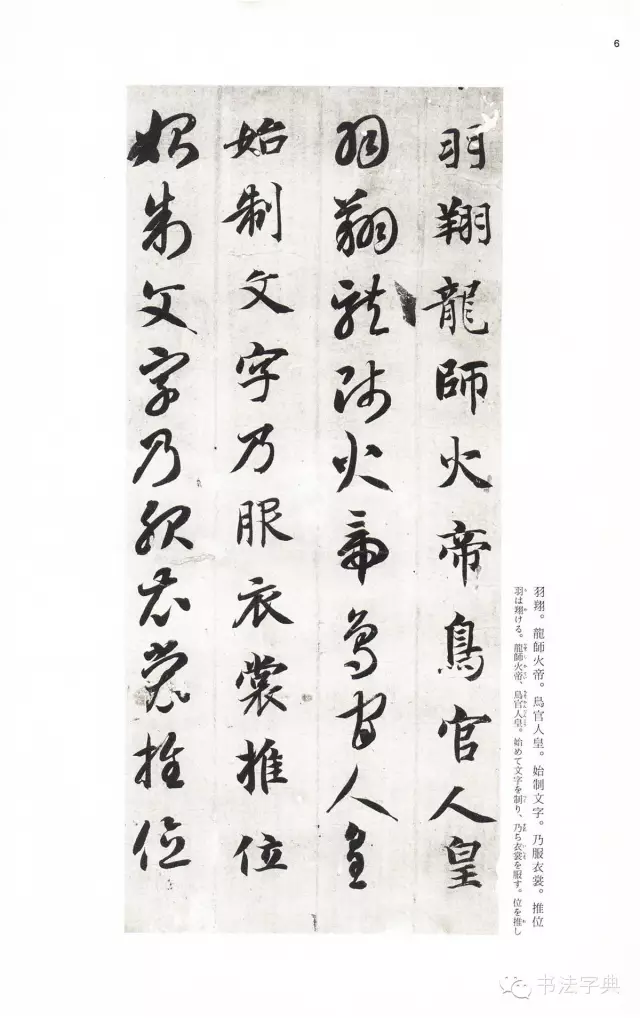 6
羽翔龍師火帝鳥官人皇
羽翔龍師火帝鳥官人皇
始制文字乃服衣裳推位
始制文字乃服衣裳推位
羽翔。龍師火帝。鳥官人皇。始制文字。乃服衣裳。推位
羽は翔ける。龍師火帝、鳥官人皇。始めて文字を制り、乃ち衣裳を服す。位を推し
书法字典